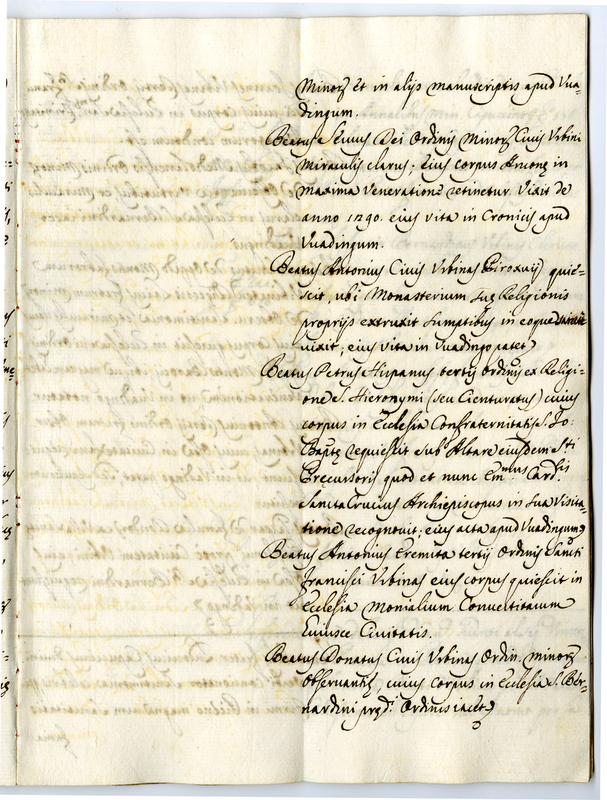 Minor. et in alijs manuscriptis apud Vua-
dingum.
Beatus Seruus Dei Ordinis Minor. Ciuis Vrbini
Miraculis clarus; eius corpus Anconę in
maxima Veneratione retinetur. Vixit de
anno 1290. eius vita in Cronicis apud
Vuadingum.
Beatus Antonius Ciuis Vrbinas quie-
scit, ubi Monasterium suę Religionis
proprijs extruxit sumptibus in eoque
uixit; eius vita in Vuadingo patet
Beatus Petrus Hispanus tertij ordinis ex Religi-
one S. Hieronymi (seu Cienturatus) cuius
corpus in Ecclesia Confraternitatis S. Jo:
Baptę requiescit sub Altare eiusdem Sti
Pręcursoris quod et nunc Emmus Card.lis
Sanctę Crucius Archiepiscopus in sua Visita-
tione recognouit; eius acta apud Vuadingum
Beatus Antonius Eremita tertij Ordinis Sancti
Francisci Vrbinas eius corpus quiescit in
Ecclesia Monialium Conuertitarum
huiusce Ciuitatis.
Beatus Donatus Ciuis Vrbinas Ordin. minor.
obseruantię, cuius corpus in Ecclesia S. Ber-
nardini prędi. Ordinis iacet